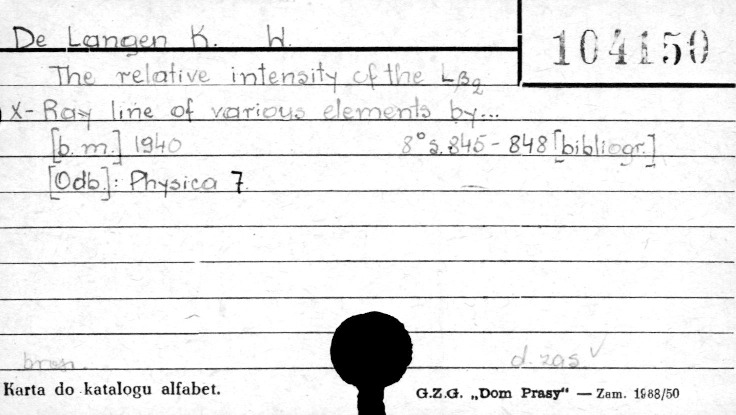 De Langen K. W.
104150
The relative intensity of the Lβ2
X-Ray line of various elements by...
[b. m.] 1940 8° s. 845 - 848 [bibliogr.]
[Odb]: Physica 7.
bros. d. zas. v
Karta do katalogu alfabet.
G.Z.G. „Dom Prasy“ — Zam. 1988/50